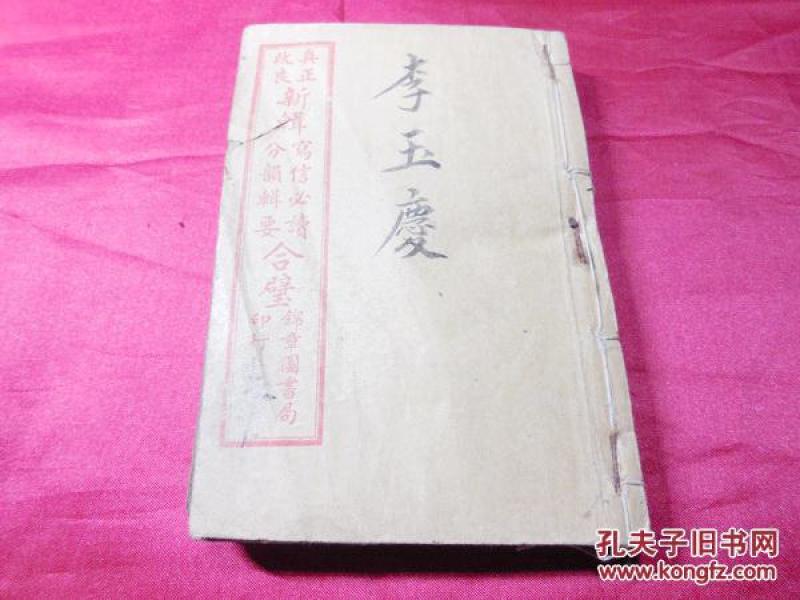 李玉慶
真正
改良
新輯寫信必讀
分韻輯要
合璧
錦章圖書局
印行
孔夫子旧书网
www.kongfz.com